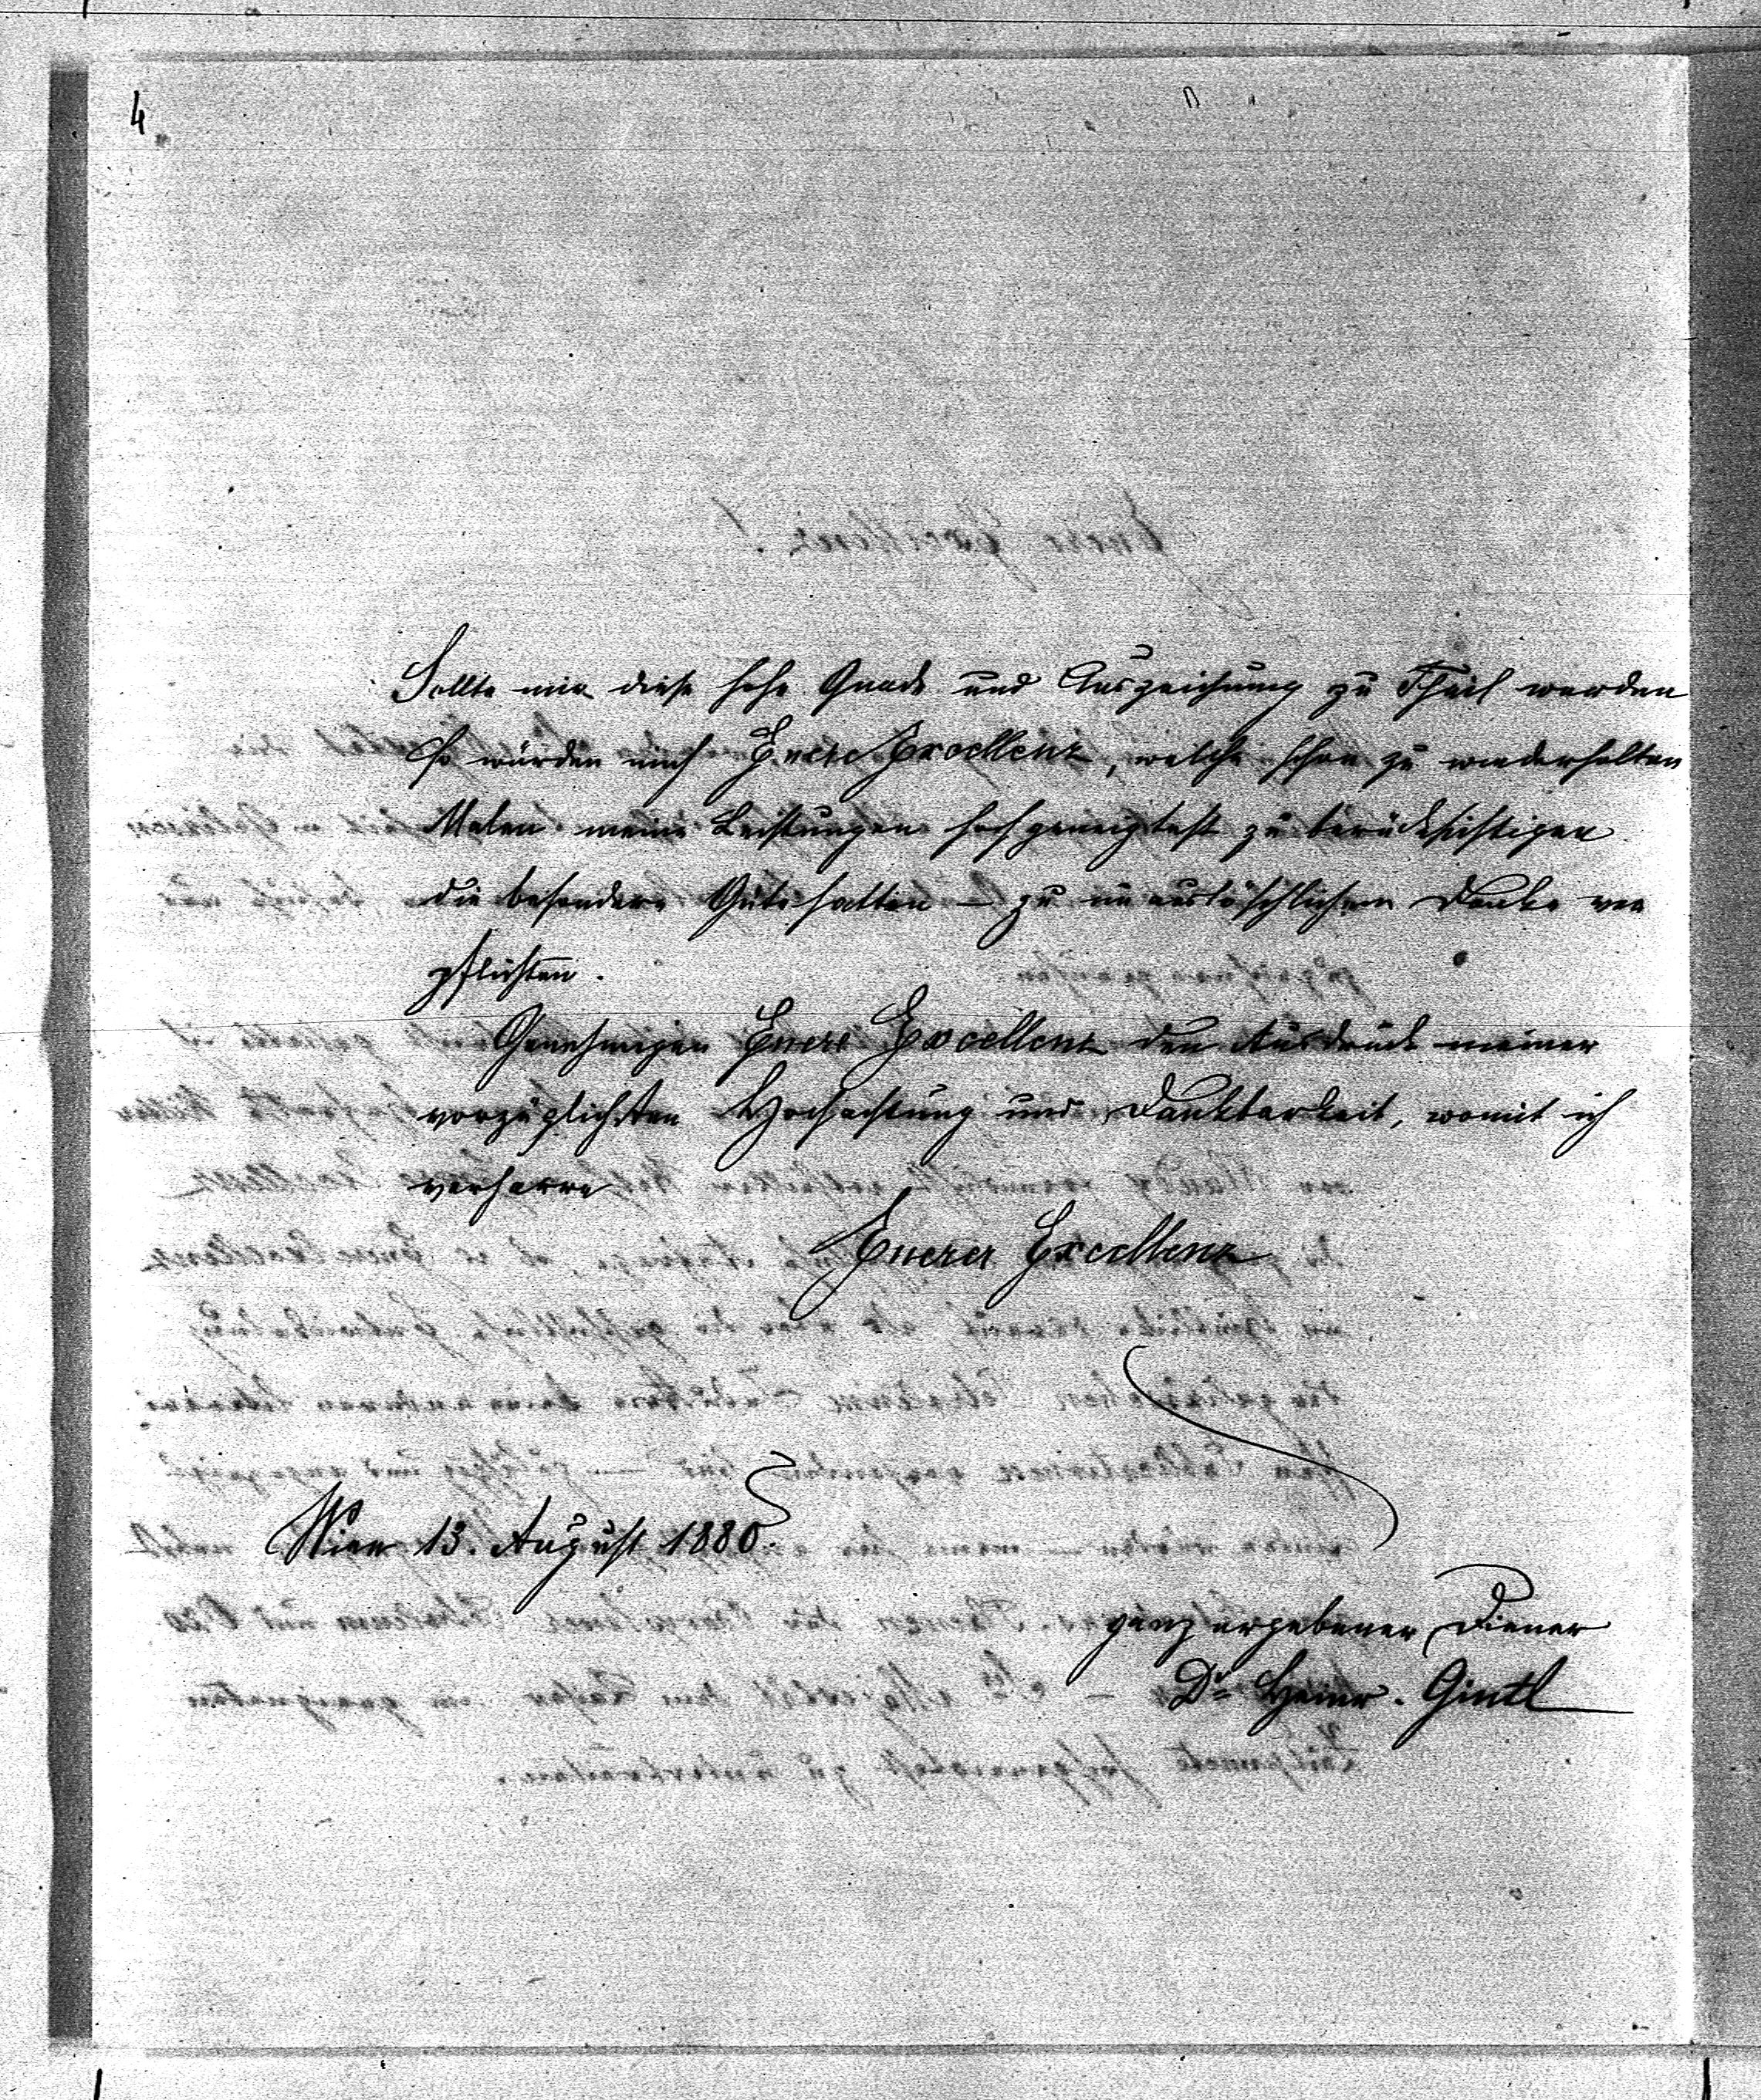 4
Sollte mir diese hohe Gnade und Auszeichnung zu Theil werden
so würden mich Euere Excellenz, welche schon zu wiederholten
Malen meine Leistungen hochgeneigtest zu berücksichtigen
die besondere Güte hatten – zu unauslöschlichem Danke ver
pflichten.
Genehmigen Euere Excellenz den Ausdruck meiner
vorzüglichsten Hochachtung und Dankbarkeit, womit ich
verharre
Euerer Excellenz
Wien 13. August 1880.
ganz ergebener Diener
Dr Heinr. Gintl